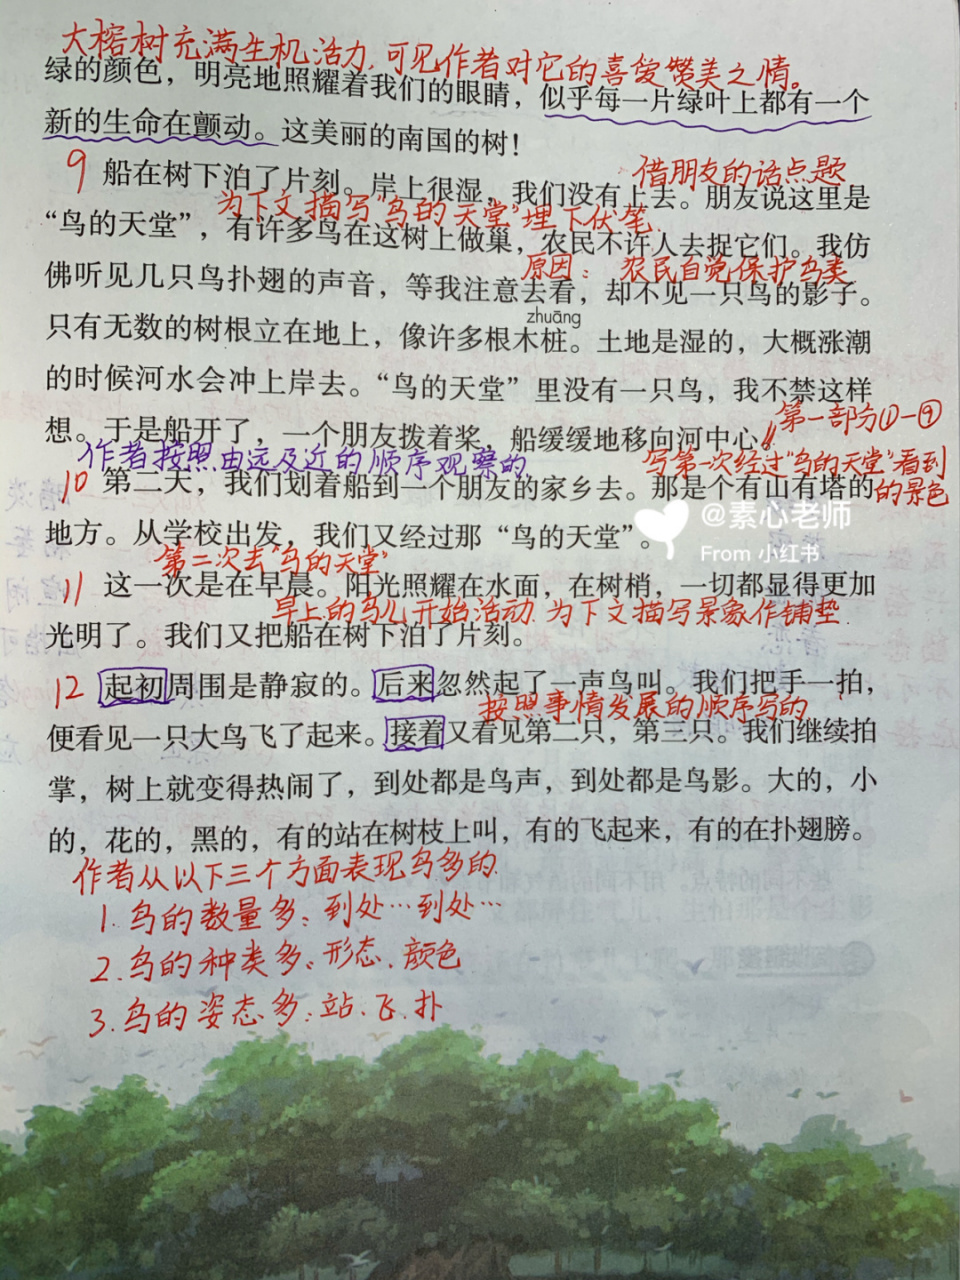 大榕树充满生机活力,可见作者对它的喜爱赞美之情。
绿的颜色，明亮地照耀着我们的眼睛，似乎每一片绿叶上都有一个
新的生命在颤动。这美丽的南国的树！
借朋友的话点题
9 船在树下泊了片刻。岸上很湿，我们没有上去。朋友说这里是
为下文描写“鸟的天堂”埋下伏笔.
“鸟的天堂”，有许多鸟在这树上做巢，农民不许人去捉它们。我仿
原因：农民自觉保护鸟类
佛听见几只鸟扑翅的声音，等我注意去看，却不见一只鸟的影子。
zhuāng
只有无数的树根立在地上，像许多根木桩。土地是湿的，大概涨潮
的时候河水会冲上岸去。“鸟的天堂”里没有一只鸟，我不禁这样
第一部分①-⑨
想。于是船开了，一个朋友拨着桨，船缓缓地移向河中心。
作者按照由远及近的顺序观察的
写第一次经过“鸟的天堂”看到
的景色
10 第二天，我们划着船到一个朋友的家乡去。那是个有山有塔的
地方。从学校出发，我们又经过那“鸟的天堂”。
@素心老师
From 小红书
第二次去“鸟的天堂”
11 这一次是在早晨。阳光照耀在水面，在树梢，一切都显得更加
早上的鸟儿开始活动.为下文描写景象作铺垫.
光明了。我们又把船在树下泊了片刻。
12 起初周围是静寂的。后来忽然起了一声鸟叫。我们把手一拍，
按照事情发展的顺序写的
便看见一只大鸟飞了起来。接着又看见第二只，第三只。我们继续拍
掌，树上就变得热闹了，到处都是鸟声，到处都是鸟影。大的，小
的，花的，黑的，有的站在树枝上叫，有的飞起来，有的在扑翅膀。
作者从以下三个方面表现鸟多的.
1.鸟的数量多：到处…到处…
2.鸟的种类多：形态、颜色
3.鸟的姿态多：站、飞、扑